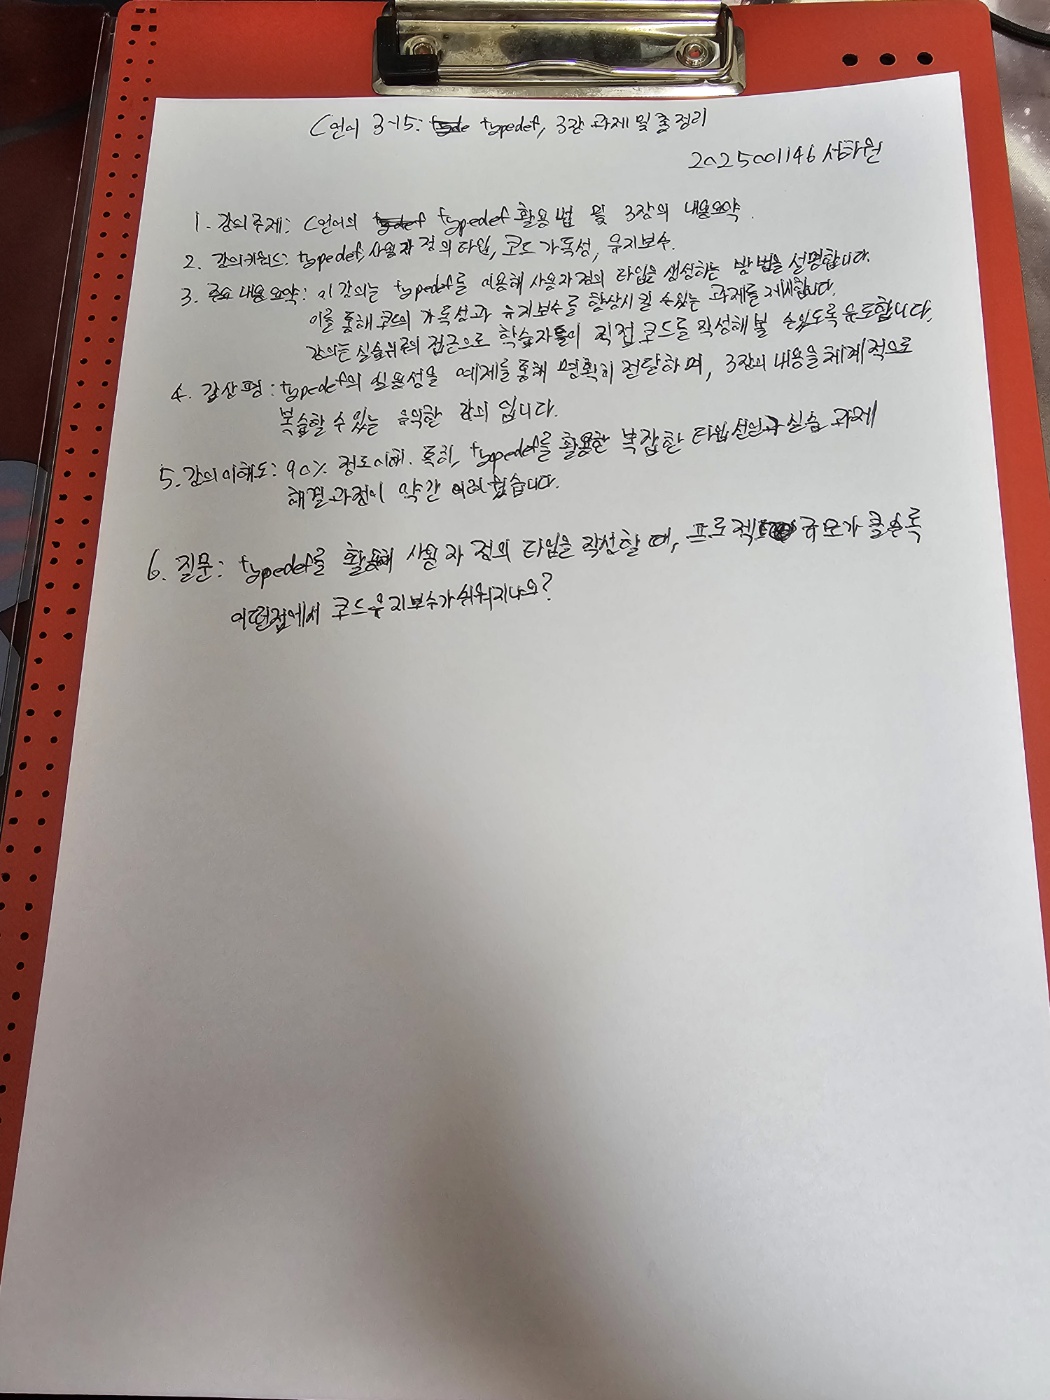 C언어 3-15: typedef, 3장 과제 및 총정리
2025001146 서하원
1. 강의주제: C언어의 typedef 활용법 및 3장의 내용요약.
2. 강의키워드: typedef, 사용자 정의 타입, 코드 가독성, 유지보수.
3. 주요 내용 요약: 이 강의는 typedef를 이용해 사용자 정의 타입을 생성하는 방법을 설명합니다.
이를 통해 코드의 가독성과 유지보수를 향상시킬 수있는 과제를 제시합니다.
강의는 실습위주의 접근으로 학습자들이 직접 코드를 작성해 볼 수있도록 유도합니다.
4. 감상평: typedef의 실용성을 예제를 통해 명확히 전달하며, 3장의 내용을 체계적으로
복습할 수 있는 유익한 강의 입니다.
5. 강의 이해도: 90% 정도이해. 특히, typedef를 활용한 복잡한 타입 선언과 실습 과제
해결 과정이 약간 어려웠습니다.
6. 질문: typedef를 활용해 사용자 정의 타입을 작성할 때, 프로젝트 규모가 클수록
어떤점에서 코드유지보수가 쉬워지나요?